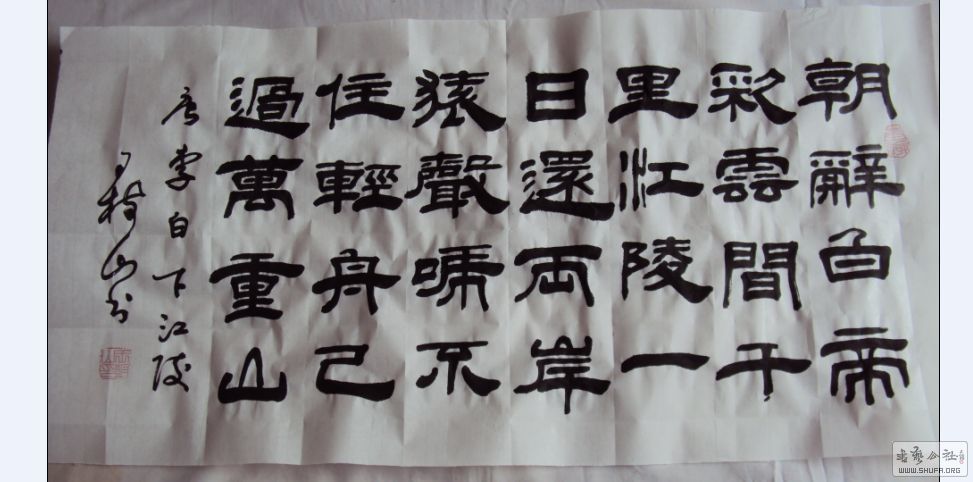 朝辭白帝
彩雲間千
里江陵一
日還両岸
猿聲啼不
住輕舟己
過萬重山
唐李白下江陵
山书
书艺公社
WWW.SHUFA.ORG